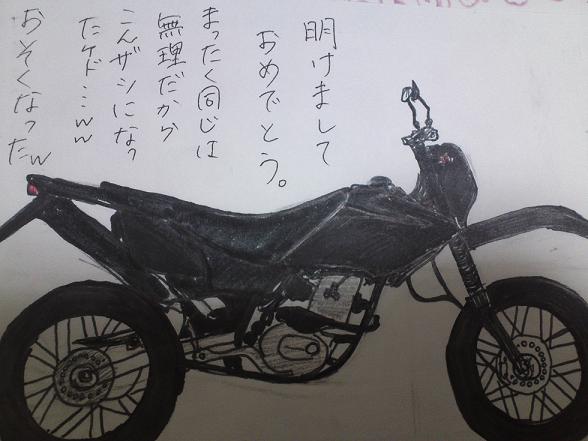 明けまして
おめでとう。
まったく同じは
無理だから
こんザツになっ
たケド…ww
おそくなったw